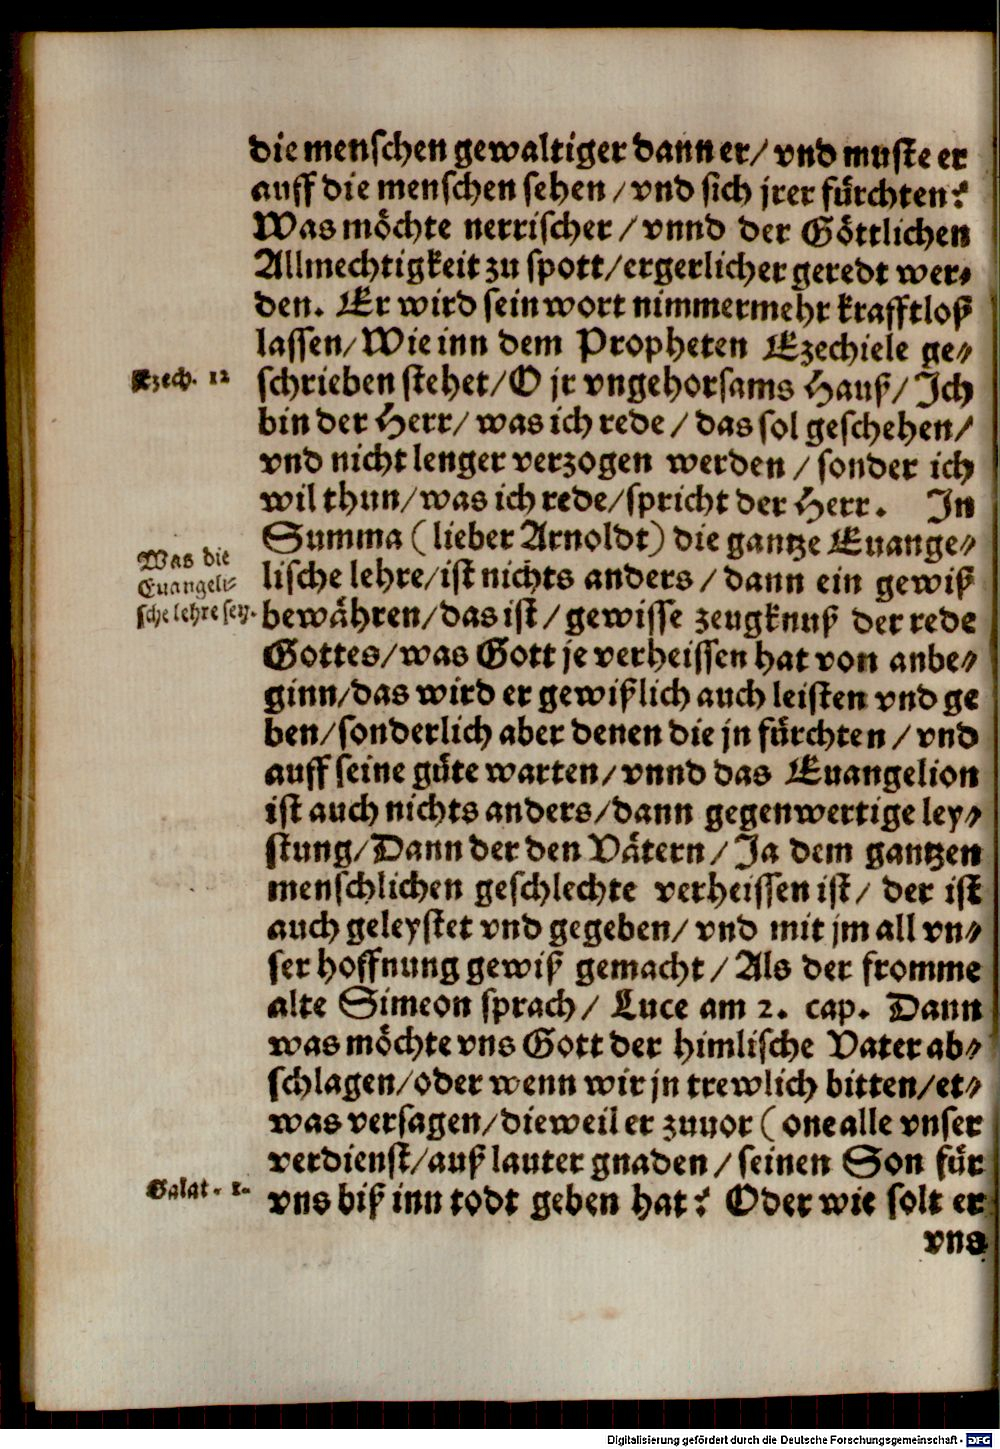 die menschen gewaltiger dann er/ vnd muste er
auff die menschen sehen/ vnd sich jrer fürchten?
Was möchte nerrischer/ vnnd der Göttlichen
Allmechtigkeit zu spott/ ergerlicher geredt wer⸗
den. Er wird sein wort nimmermehr krafftloß
lassen/ Wie inn dem Propheten Ezechiele ge⸗
Ezech. 12
schrieben stehet/ O jr vngehorsams Hauß/ Ich
bin der Herr/ was ich rede/ das sol geschehen/
vnd nicht lenger verzogen werden/ sonder ich
wil thun/ was ich rede/ spricht der Herr. In
Summa (lieber Arnoldt) die gantze Euange⸗
Was die
Euangeli⸗
sche lehre sey.
lische lehre/ ist nichts anders/ dann ein gewiß
bewähren/ das ist/ gewisse zeugknuß der rede
Gottes/ was Gott je verheissen hat von anbe⸗
ginn/ das wird er gewißlich auch leisten vnd ge
ben/ sonderlich aber denen die jn fürchten/ vnd
auff seine güte warten/ vnnd das Euangelion
ist auch nichts anders/ dann gegenwertige ley⸗
stung/ Dann der den Vätern/ Ja dem gantzen
menschlichen geschlechte verheissen ist/ der ist
auch geleystet vnd gegeben/ vnd mit jm all vn⸗
ser hoffnung gewiß gemacht/ Als der fromme
alte Simeon sprach/ Luce am 2. cap. Dann
was möchte vns Gott der himlische Vater ab⸗
schlagen/ oder wenn wir jn trewlich bitten/ et⸗
was versagen/ dieweil er zuuor (one alle vnser
verdienst/ auß lauter gnaden/ seinen Son für
Galat. 1.
vns biß inn todt geben hat? Oder wie solt er
vns
Digitalisierung gefördert durch die Deutsche Forschungsgemeinschaft - DFG